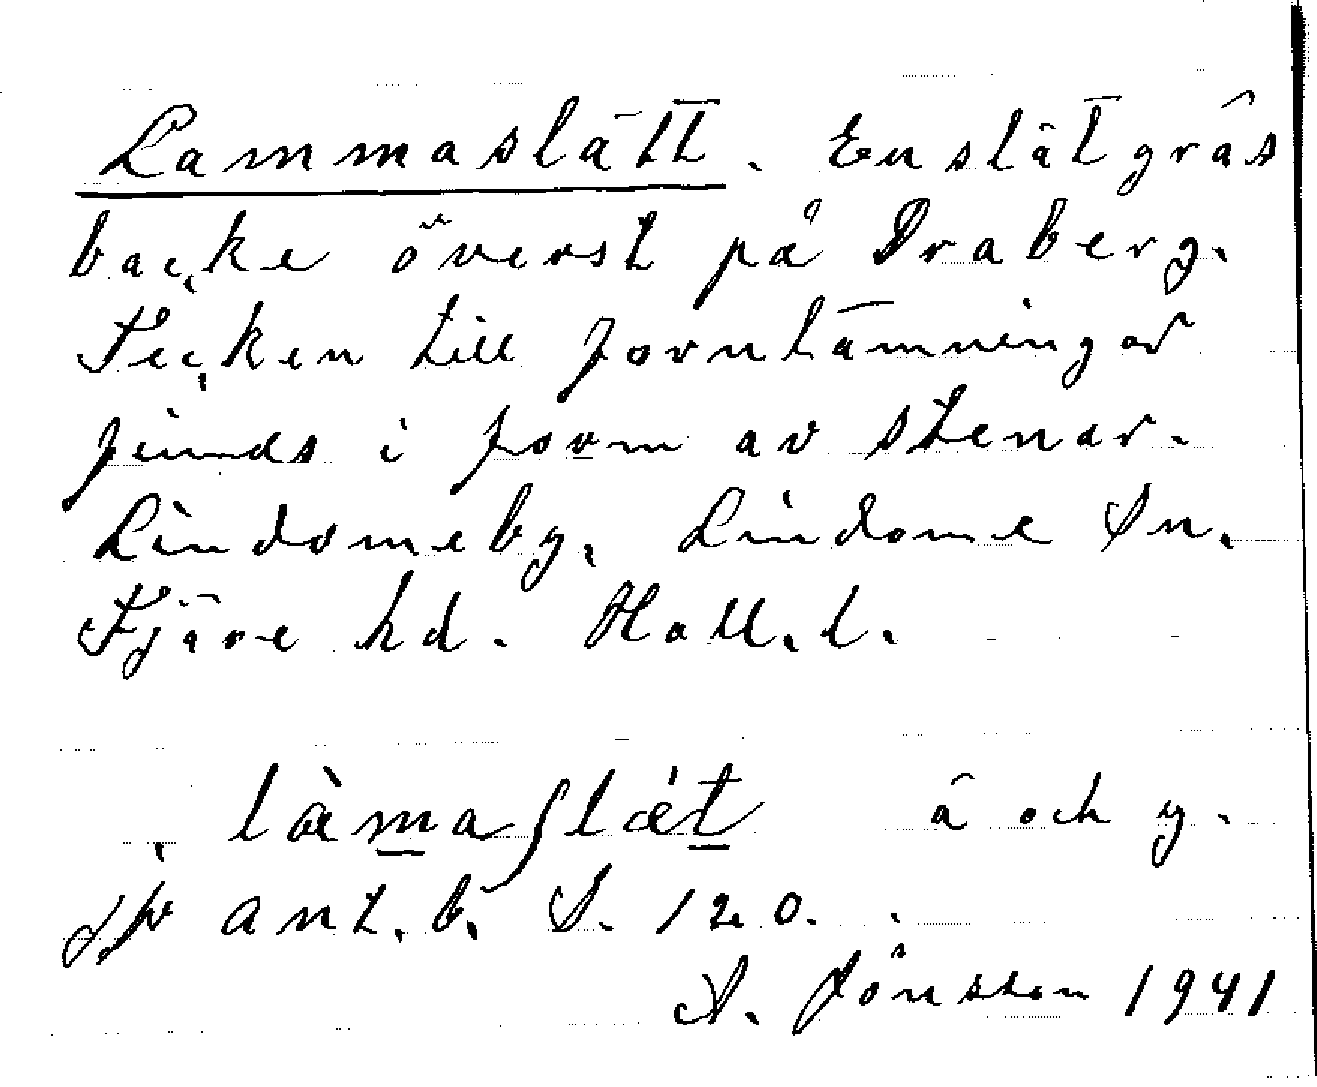 Lammaslätt. En slät gräs
backe överst på Draberg.
Tecken till fornlämningar
finnds i form av stenar.
Lindomeby. Lindome Sn.
Fjäre hd. Hall. l.
làmaʃlǽt ä och y.
ant. b. S. 120.
A. Jönsson 1941